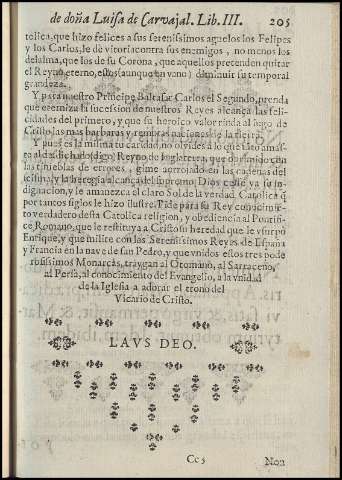 de doña Luisa de Carvajal. Lib. III. 205
tolica, que hizo felices a sus serenissimos aguelos los Felipes
y los Carlos, le dè vitoria contra sus enemigos, no menos los
del alma, que los de su Corona, que aquellos pretenden quitar
el Reyno eterno, estos (aunque en vano) diminuir su temporal
grandeza.
Y para nuestro Principe Baltasar Carlos el Segundo, prenda
que eterniza la sucession de nuestros Reyes alcança las feli-
cidades del primero, y que su heroico valor rinda al jugo de
Cristo las mas barbaras y remotas naciones de la tierra.
Y pues es la misma tu caridad, no olvides a lo que tãto amas-
te al desdichado (digo) Reyno de Inglaterra, que oprimido con
las tinieblas de errores, gime aprisionado en las cadenas del
cisma, y la heregia alcança del soberano Dios cesse ya su in-
dignacion, y le amanezca el claro Sol de la verdad Catolica q̃
por tantos siglos le hizo ilustre. Pide para su Rey conocimiẽ-
to verdadero desta Catolica religion, y obediencia al Pontifi-
ce Romano, que le restituya a Cristo su heredad que le vsurpò
Enrique, y que milite con los Serenissimos Reyes de España
y Francia en la nave de san Pedro, y que vnidos estos tres pode
rosissimos Monarcas, traygan al Otomano, al Sarraceno,
al Persa, al conocimiento del Evangelio, a la vnidad
de la Iglesia a adorar el trono del
Vicario de Cristo.
LAVS DEO.
Cc 5 Non